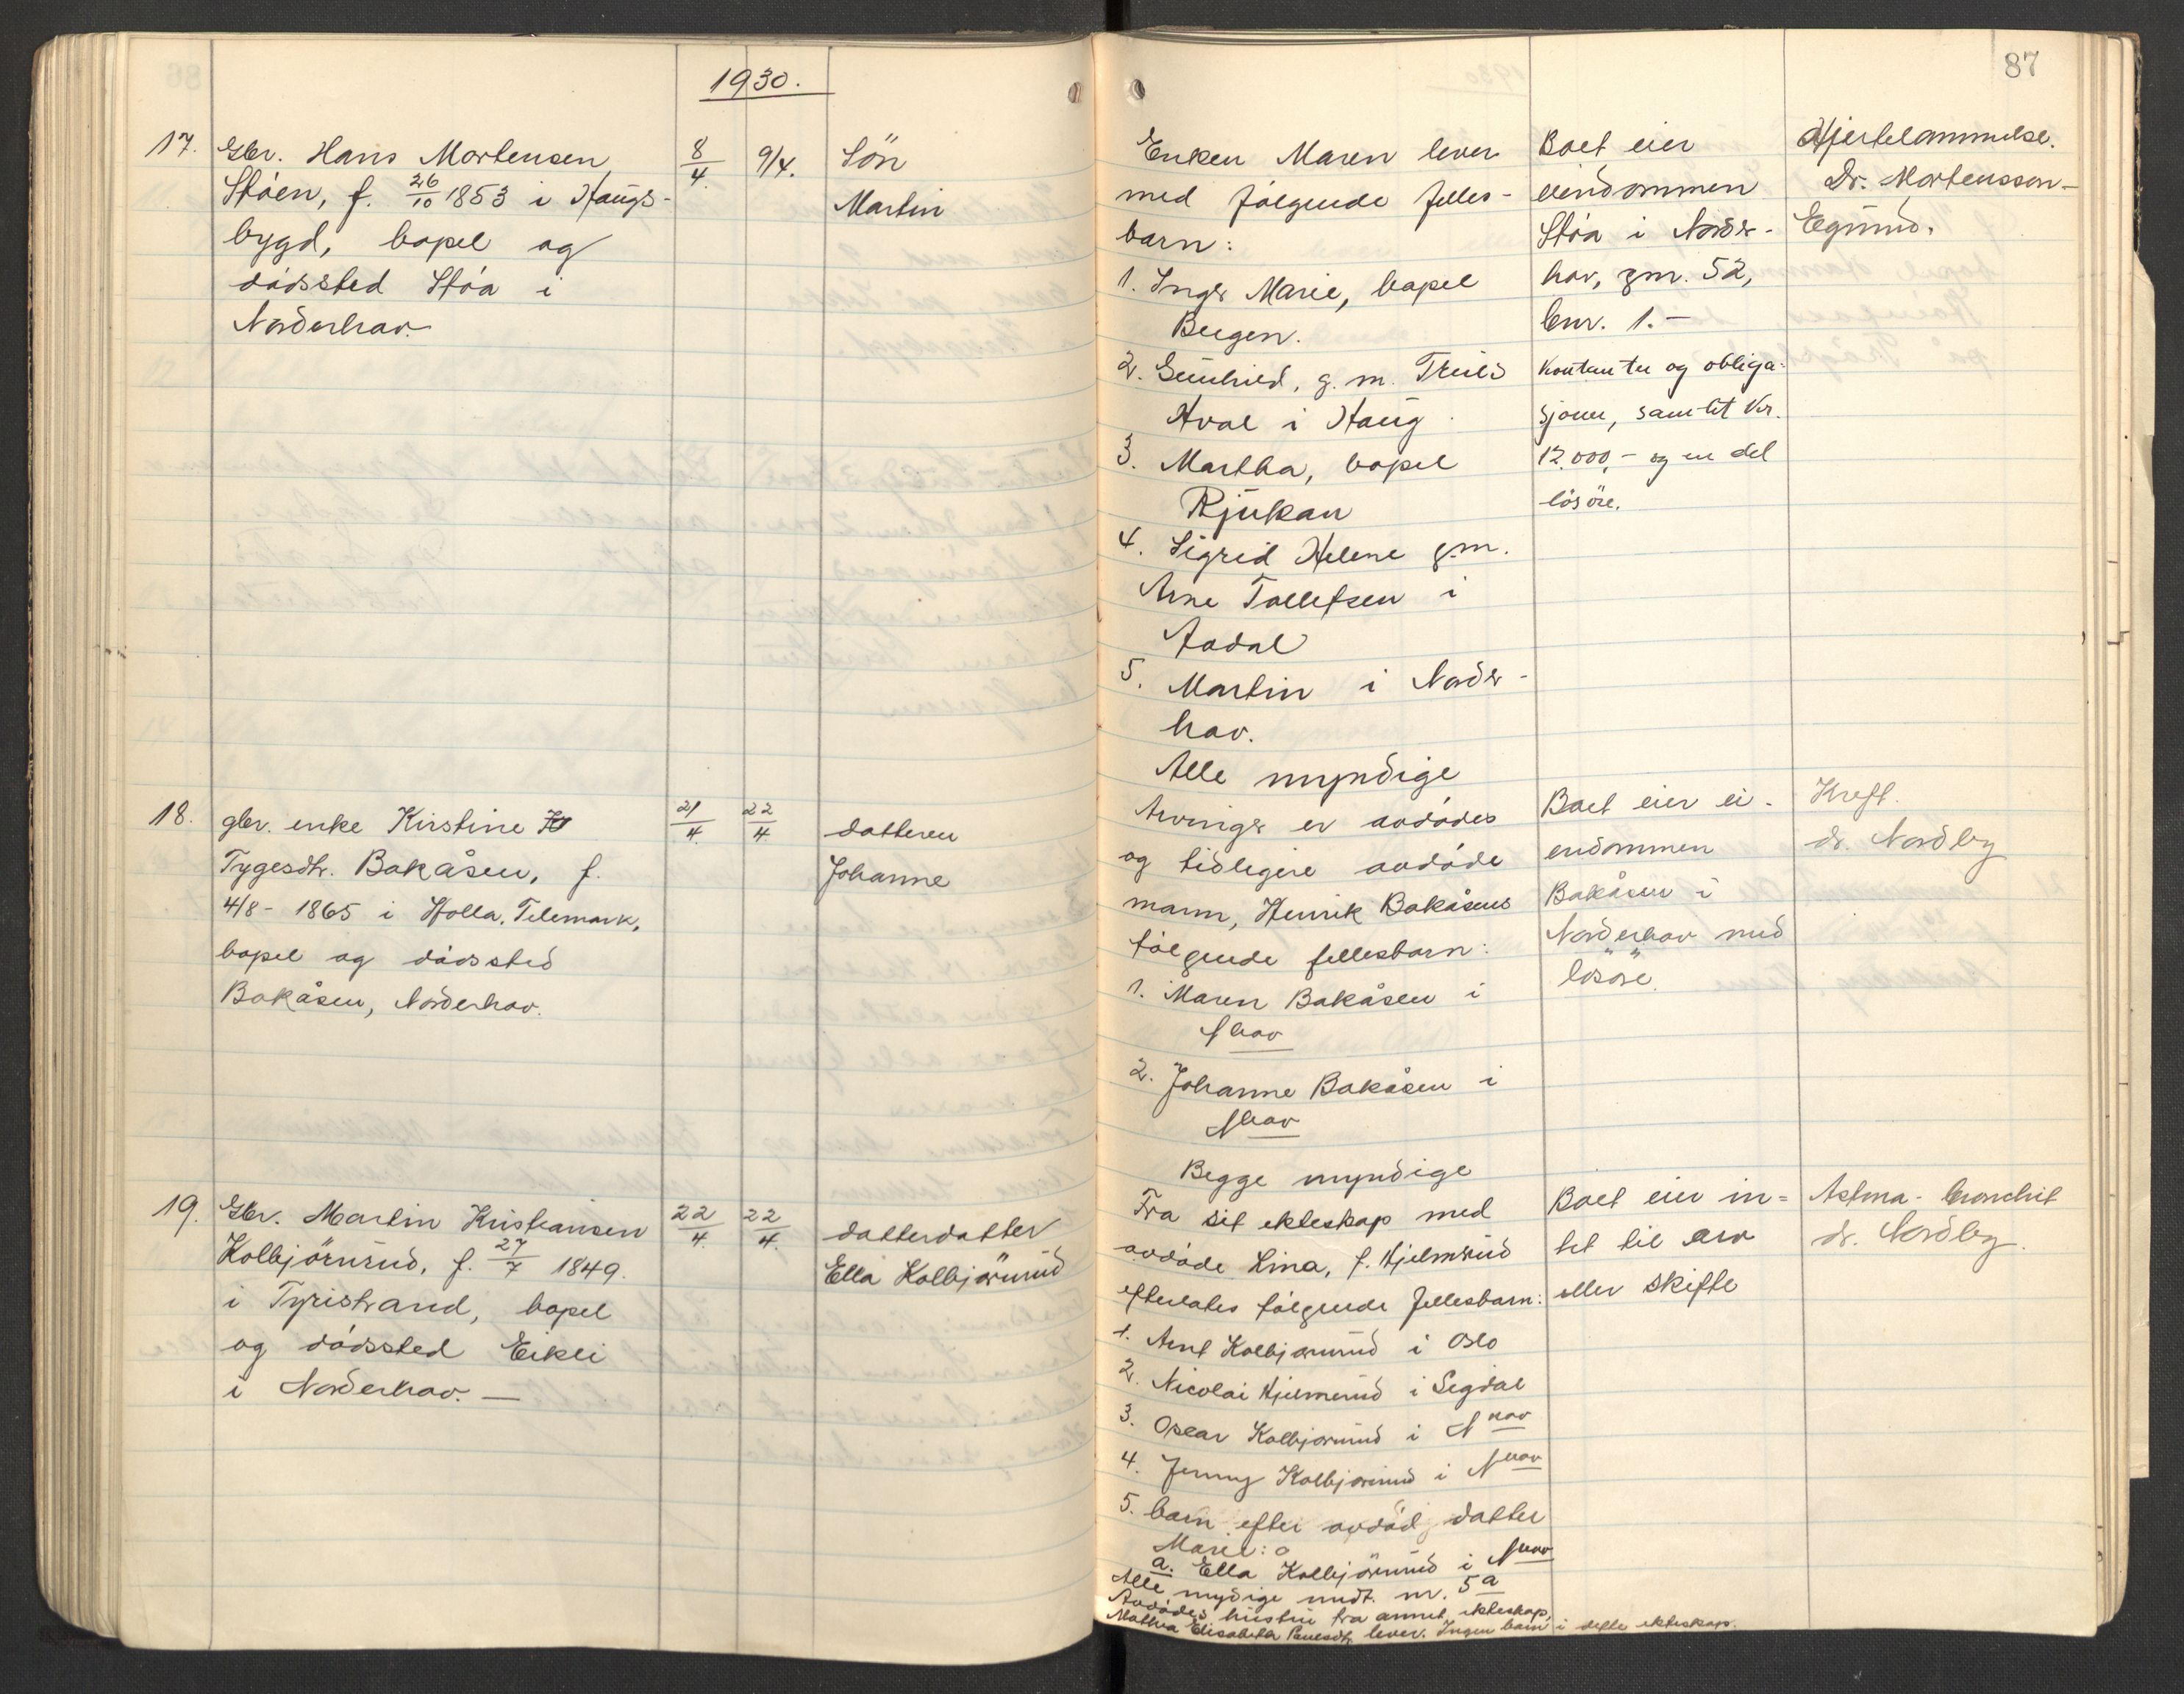 1930.
17. Gbr. Hans Mortensen
Støen, f. 26/10 1853 i Haugs-
bygd, bopel og
dødssted Støa i
Norderhov.
8/4. 9/4. Sön
Martin
18. gbr. enke Kirstine
Tygesdtr. Bakåsen, f.
4/8 - 1865 i Holla, Telemark,
bopel og dødssted
Bakåsen, Norderhov.
21/4. 22/4. datteren
Johanne
19. Gbr. Martin Kristiansen
Kolbjörnrud, f. 27/7 1849.
i Tyristrand, bopel
og dødssted Eikli
i Norderhov. —
22/4. 22/4. datterdatter
Ella Kolbjörnrud
87
Enken Maren lever
med følgende felles-
barn:
1. Inger Marie, bopel
Bergen.
2. Gunhild, g. m. Truls
Hval i Haug
3. Martha, bopel
Rjukan
4. Sigrid Helene g.m.
Arne Tollefsen i
Aadal
5. Martin i Norder-
hov.
Alle myndige
Boet eier
eiendommen
Støa i Norder-
hov, gnr. 52,
bnr. 1.-
Kontanter og obliga-
sjoner, samlet kr.
12.000,- og en del
lösöre.
Hjertelammelse.
Dr. Mortensson-
Egnund.
Arvinger er avdødes
og tidligere avdøde
mann, Henrik Bakåsens
følgende fellesbarn:
1. Maren Bakåsen i
Nhov
2. Johanne Bakåsen i
Nhov
Begge myndige
Boet eier ei-
endommen
Bakåsen i
Norderhov med
lösöre.
Kreft.
dr. Nordby
Fra sit ekteskap med
avdøde Lina, f. Hjelmerud
efterlates følgende fellesbarn:
1. Arnt Kolbjørnrud i Oslo
2. Nicolai Hjelmerud i Sigdal
3. Oscar Kolbjørnrud i Nhov
4. Jenny Kolbjørnrud i Nhov
5. barn efter avdød datter
Marie:
a. Ella Kolbjörnrud i Nhov
Alle mydige undt. nr. 5a
Avdødes hustru fra annet ekteskap,
Mathea Elisabeth lever. Ingen barn i dette ekteskap.
Boet eier in=
tet til arv
eller skifte
Astma - bronchit
dr. Nordby.